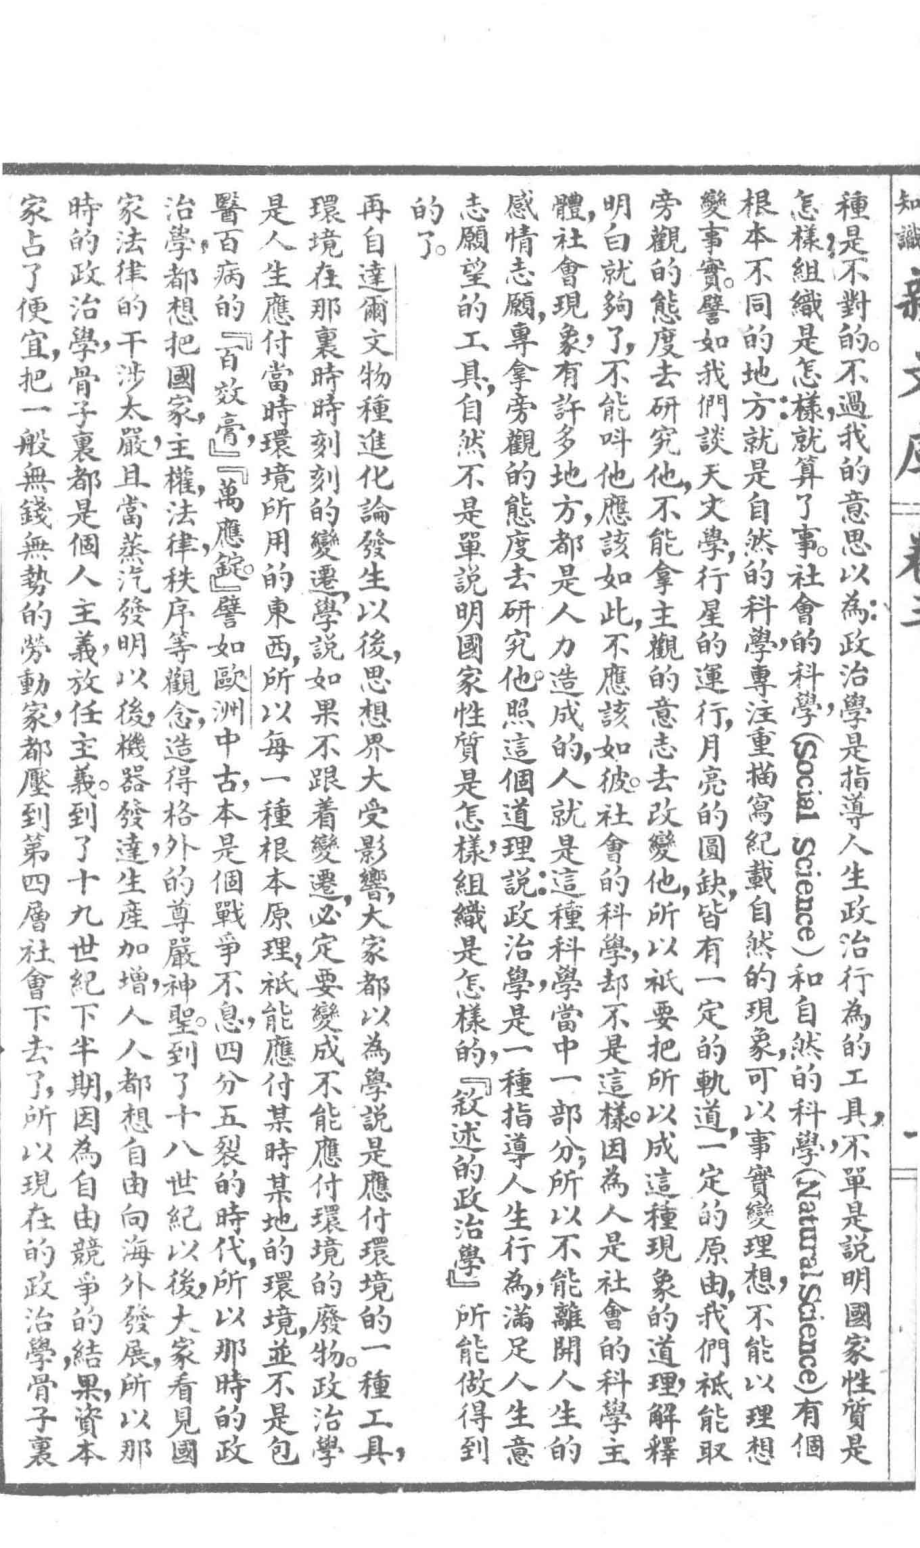 知識新文庫 卷二 一
種，是不對的。不過我的意思以為：政治學，是指導人生政治行為的工具，不單是說明國家性質是
怎樣，組織是怎樣，就算了事。社會的科學，(Social Science) 和自然的科學，(Natural Science) 有個
根本不同的地方：就是自然的科學，專注重描寫紀載自然的現象，可以事實變理想，不能以理想
變事實。譬如我們談天文學，行星的運行，月亮的圓缺，皆有一定的軌道，一定的原由，我們祗能取
旁觀的態度去研究他，不能拿主觀的意志去改變他，所以祗要把所以成這種現象的道理，解釋
明白就夠了，不能呌他應該如此，不應該如彼。社會的科學，却不是這樣。因為人是社會的科學主
體，社會現象，有許多地方，都是人力造成的，人就是這種科學當中一部分，所以不能離開人生的
感情志願，專拿旁觀的態度去研究他。照這個道理說：政治學，是一種指導人生行為，滿足人生意
志願望的工具，自然不是單說明國家性質是怎樣，組織是怎樣的，『敘述的政治學』所能做得到
的了。
再自達爾文物種進化論發生以後，思想界大受影響，大家都以為學說是應付環境的一種工具，
環境在那裏時時刻刻的變遷，學說如果不跟着變遷，必定要變成不能應付環境的廢物。政治學
是人生應付當時環境所用的東西，所以每一種根本原理，祗能應付某時某地的環境，並不是包
醫百病的『百效膏』，『萬應錠。』譬如歐洲中古，本是個戰爭不息，四分五裂的時代，所以那時的政
治學，都想把國家，主權，法律秩序等觀念，造得格外的尊嚴神聖。到了十八世紀以後，大家看見國
家法律的干涉太嚴，且當蒸汽發明以後，機器發達，生產加增，人人都想自由向海外發展，所以那
時的政治學，骨子裏都是個人主義，放任主義。到了十九世紀下半期，因為自由競爭的結果，資本
家占了便宜，把一般無錢無勢的勞動家，都壓到第四層社會下去了，所以現在的政治學，骨子裏